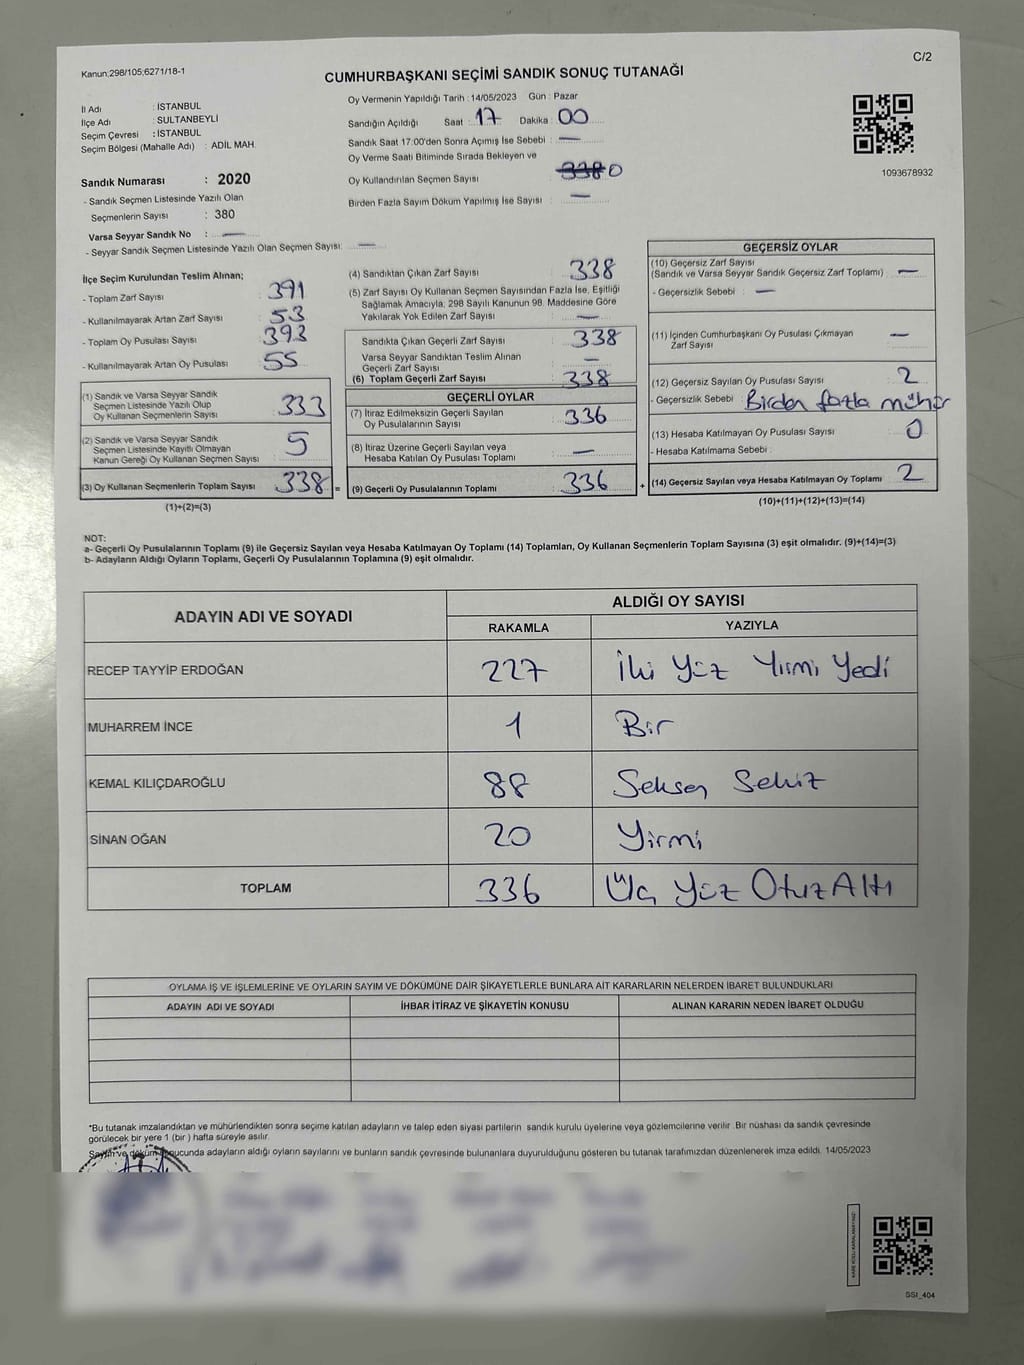 Kanun:298/105;6271/18-1
C/2
CUMHURBAŞKANI SEÇİMİ SANDIK SONUÇ TUTANAĞI
İl Adı : İSTANBUL
İlçe Adı : SULTANBEYLİ
Seçim Çevresi : İSTANBUL
Seçim Bölgesi (Mahalle Adı) : ADİL MAH.
Sandık Numarası : 2020
- Sandık Seçmen Listesinde Yazılı Olan
Seçmenlerin Sayısı : 380
Varsa Seyyar Sandık No : —
- Seyyar Sandık Seçmen Listesinde Yazılı Olan Seçmen Sayısı: —
Oy Vermenin Yapıldığı Tarih : 14/05/2023 Gün : Pazar
Sandığın Açıldığı Saat : 17 Dakika : 00
Sandık Saat 17:00'den Sonra Açımış İse Sebebi : —
Oy Verme Saati Bitiminde Sırada Bekleyen ve
Oy Kullandırılan Seçmen Sayısı : 338 0
Birden Fazla Sayım Döküm Yapılmış İse Sayısı : —
1093678932
İlçe Seçim Kurulundan Teslim Alınan;
- Toplam Zarf Sayısı : 391
- Kullanılmayarak Artan Zarf Sayısı : 53
- Toplam Oy Pusulası Sayısı : 393
- Kullanılmayarak Artan Oy Pusulası : 55
(1) Sandık ve Varsa Seyyar Sandık
Seçmen Listesinde Yazılı Olup
Oy Kullanan Seçmenlerin Sayısı : 333
(2) Sandık ve Varsa Seyyar Sandık
Seçmen Listesinde Kayıtlı Olmayan
Kanun Gereği Oy Kullanan Seçmen Sayısı : 5
(3) Oy Kullanan Seçmenlerin Toplam Sayısı : 338 =
(1)+(2)=(3)
(4) Sandıktan Çıkan Zarf Sayısı : 338
(5) Zarf Sayısı Oy Kullanan Seçmen Sayısından Fazla İse, Eşitliği
Sağlamak Amacıyla; 298 Sayılı Kanunun 98. Maddesine Göre
Yakılarak Yok Edilen Zarf Sayısı : —
Sandıkta Çıkan Geçerli Zarf Sayısı : 338
Varsa Seyyar Sandıktan Teslim Alınan
Geçerli Zarf Sayısı : —
(6) Toplam Geçerli Zarf Sayısı : 338
GEÇERLİ OYLAR
(7) İtiraz Edilmeksizin Geçerli Sayılan
Oy Pusulalarının Sayısı : 336
(8) İtiraz Üzerine Geçerli Sayılan veya
Hesaba Katılan Oy Pusulası Toplamı : —
(9) Geçerli Oy Pusulalarının Toplamı : 336 +
GEÇERSİZ OYLAR
(10) Geçersiz Zarf Sayısı
(Sandık ve Varsa Seyyar Sandık Geçersiz Zarf Toplamı) : —
- Geçersizlik Sebebi : —
(11) İçinden Cumhurbaşkanı Oy Pusulası Çıkmayan
Zarf Sayısı : —
(12) Geçersiz Sayılan Oy Pusulası Sayısı : 2
- Geçersizlik Sebebi : Birden fazla mühür
(13) Hesaba Katılmayan Oy Pusulası Sayısı : 0
- Hesaba Katılmama Sebebi :
(14) Geçersiz Sayılan veya Hesaba Katılmayan Oy Toplamı : 2
(10)+(11)+(12)+(13)=(14)
NOT:
a- Geçerli Oy Pusulalarının Toplamı (9) ile Geçersiz Sayılan veya Hesaba Katılmayan Oy Toplamı (14) Toplamları, Oy Kullanan Seçmenlerin Toplam Sayısına (3) eşit olmalıdır. (9)+(14)=(3)
b- Adayların Aldığı Oyların Toplamı, Geçerli Oy Pusulalarının Toplamına (9) eşit olmalıdır.
ADAYIN ADI VE SOYADI
ALDIĞI OY SAYISI
RAKAMLA YAZIYLA
RECEP TAYYİP ERDOĞAN 227 İki Yüz Yirmi Yedi
MUHARREM İNCE 1 Bir
KEMAL KILIÇDAROĞLU 88 Seksen Sekiz
SİNAN OĞAN 20 Yirmi
TOPLAM 336 Üç Yüz Otuz Altı
OYLAMA İŞ VE İŞLEMLERİNE VE OYLARIN SAYIM VE DÖKÜMÜNE DAİR ŞİKAYETLERLE BUNLARA AİT KARARLARIN NELERDEN İBARET BULUNDUKLARI
ADAYIN ADI VE SOYADI İHBAR İTİRAZ VE ŞİKAYETİN KONUSU ALINAN KARARIN NEDEN İBARET OLDUĞU
*Bu tutanak imzalandıktan ve mühürlendikten sonra seçime katılan adayların ve talep eden siyasi partilerin sandık kurulu üyelerine veya gözlemcilerine verilir. Bir nüshası da sandık çevresinde
görülecek bir yere 1 (bir) hafta süreyle asılır.
Sayım ve döküm sonucunda adayların aldığı oyların sayılarını ve bunların sandık çevresinde bulunanlara duyurulduğunu gösteren bu tutanak tarafımızdan düzenlenerek imza edildi. 14/05/2023
SSI_404